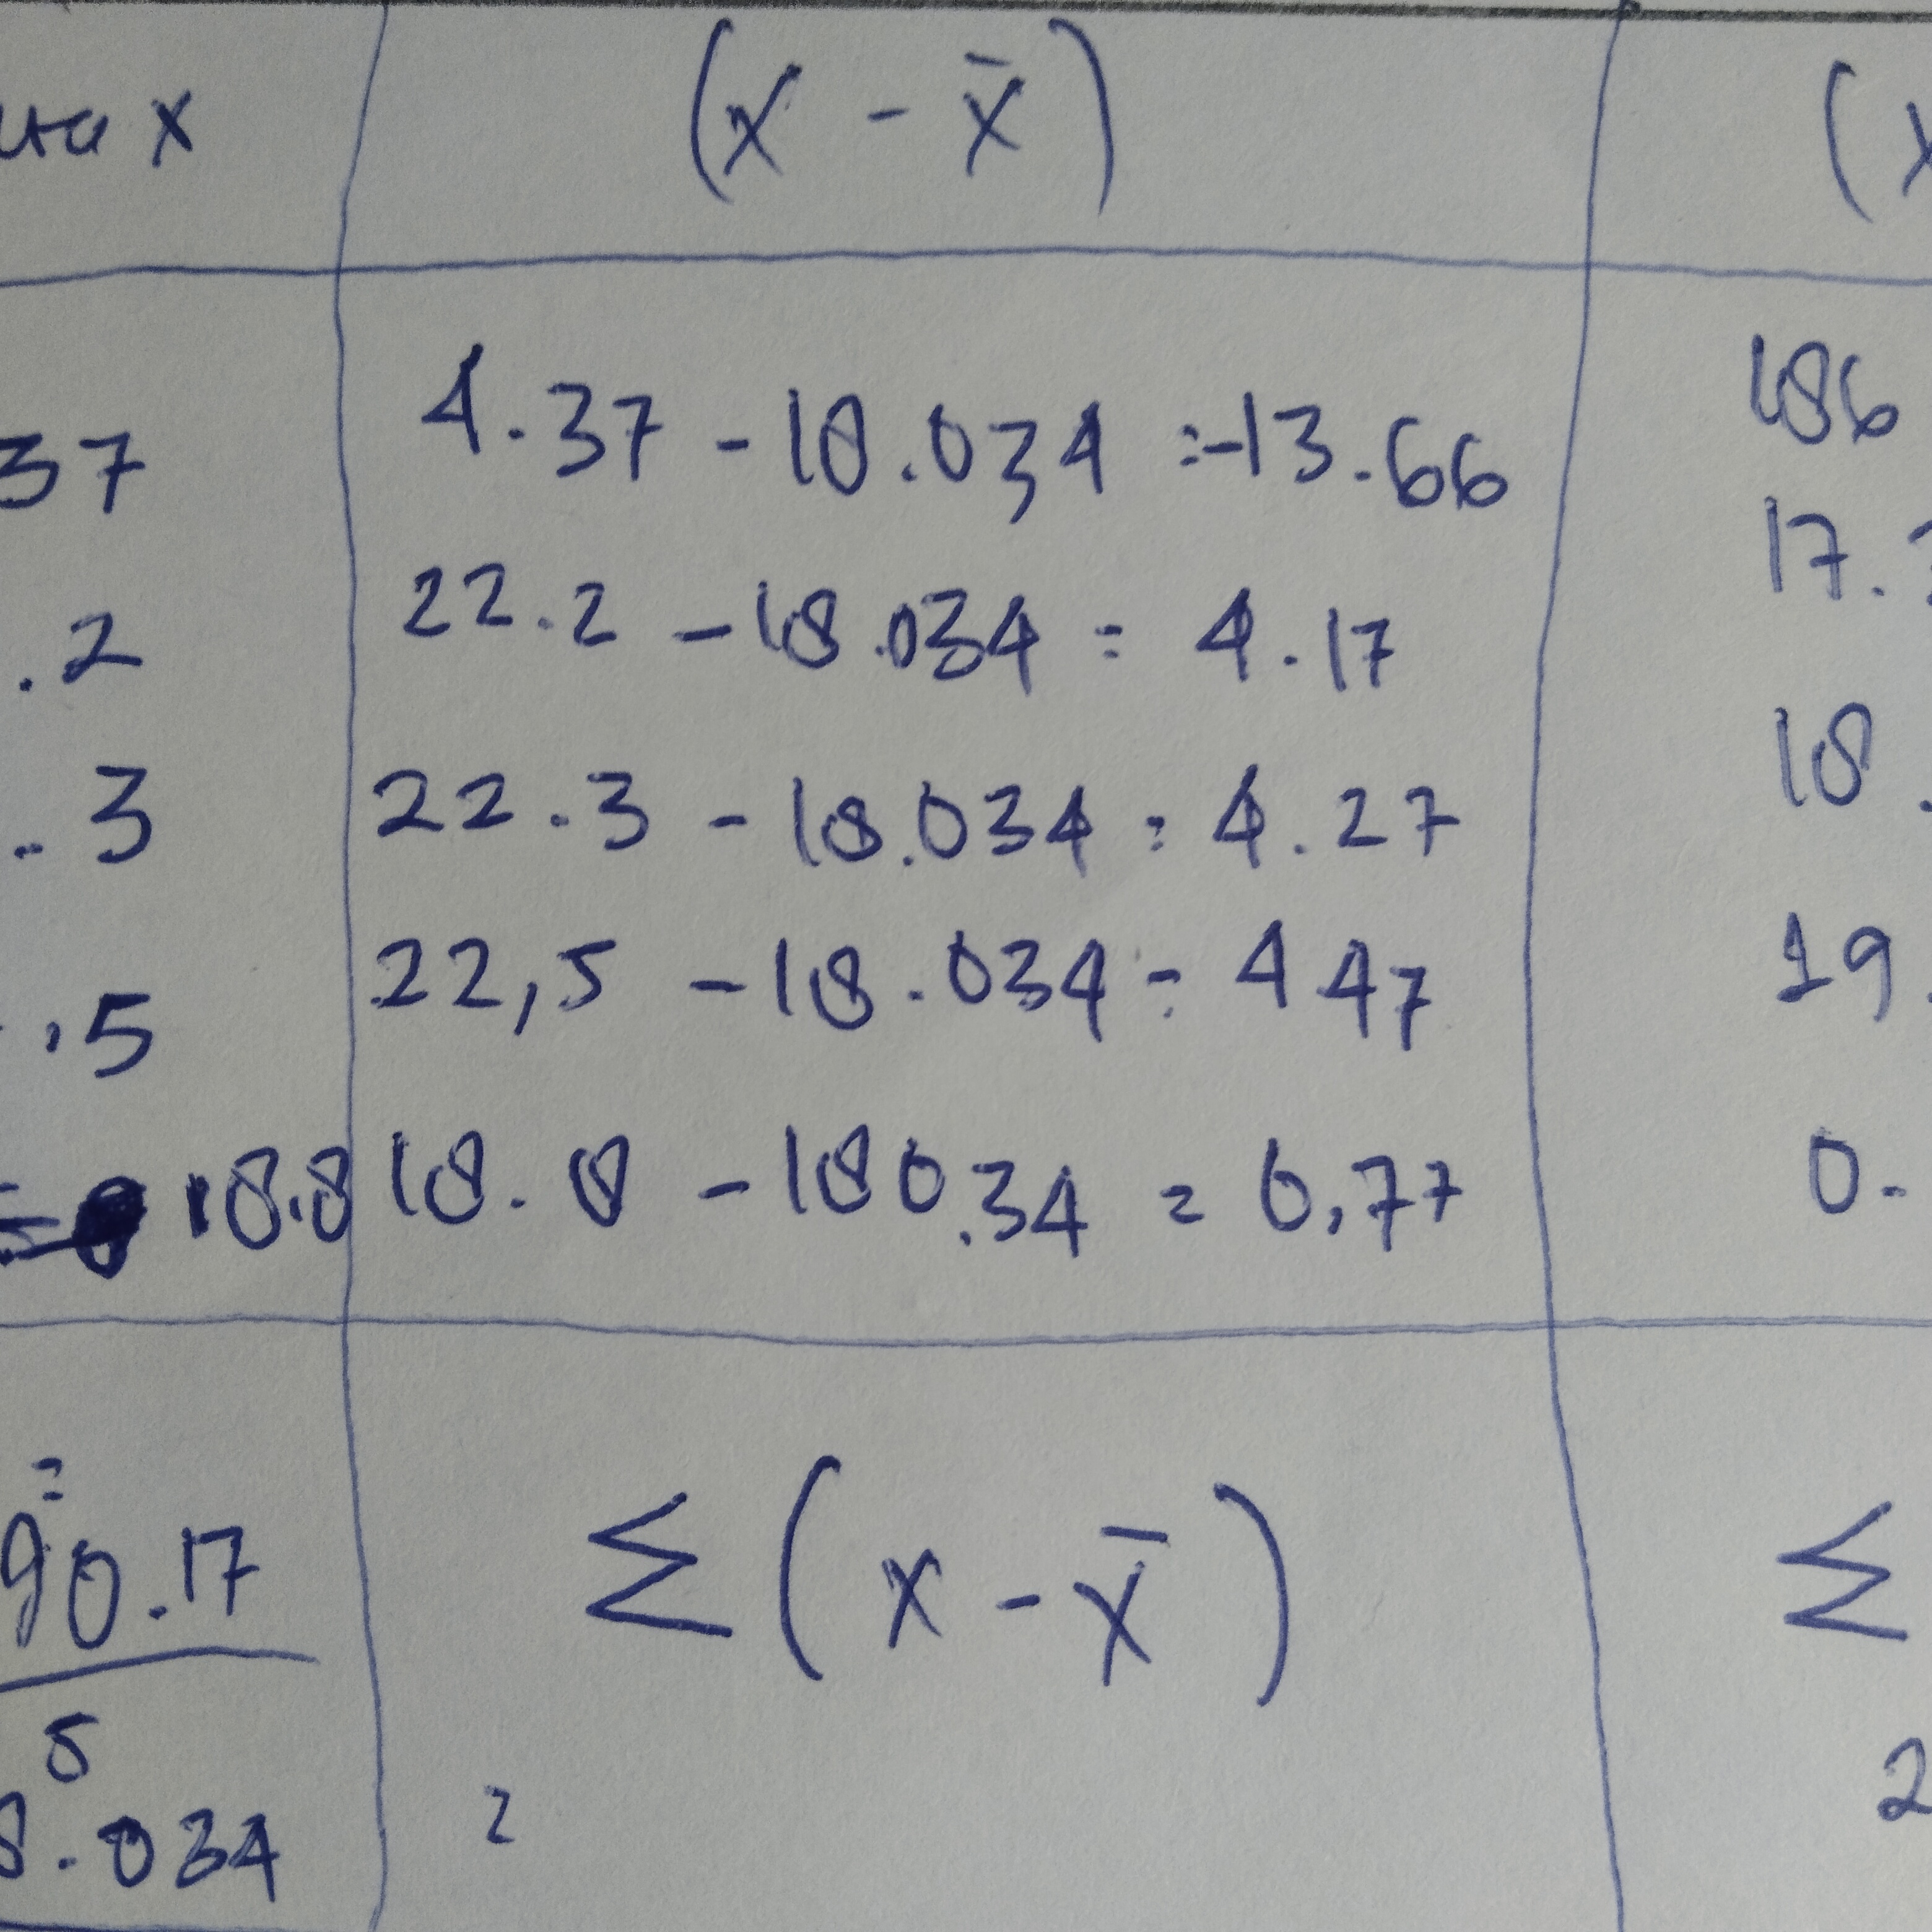 x (x - x̄) (x
37 4.37 - 18.034 =-13.66 186
.2 22.2 - 18.034 = 4.17 17.
.3 22.3 - 18.034 = 4.27 18.
.5 22,5 - 18.034 = 4.47 19.
18.8 18.8 - 180.34 = 0,77 0.
=
90.17 Σ(x - x̄) Σ
5
8.034 = 2